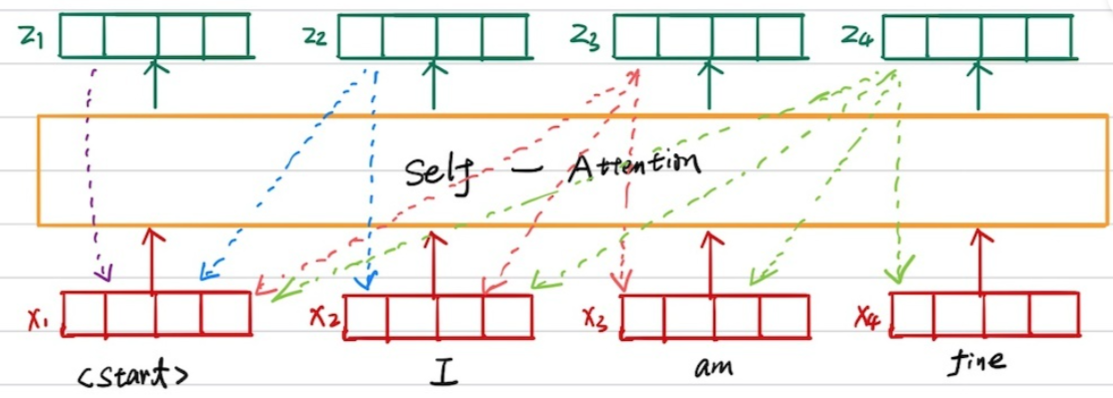 Z1 Z2 Z3 Z4
Self - Attention
X1 X2 X3 X4
<Start> I am fine